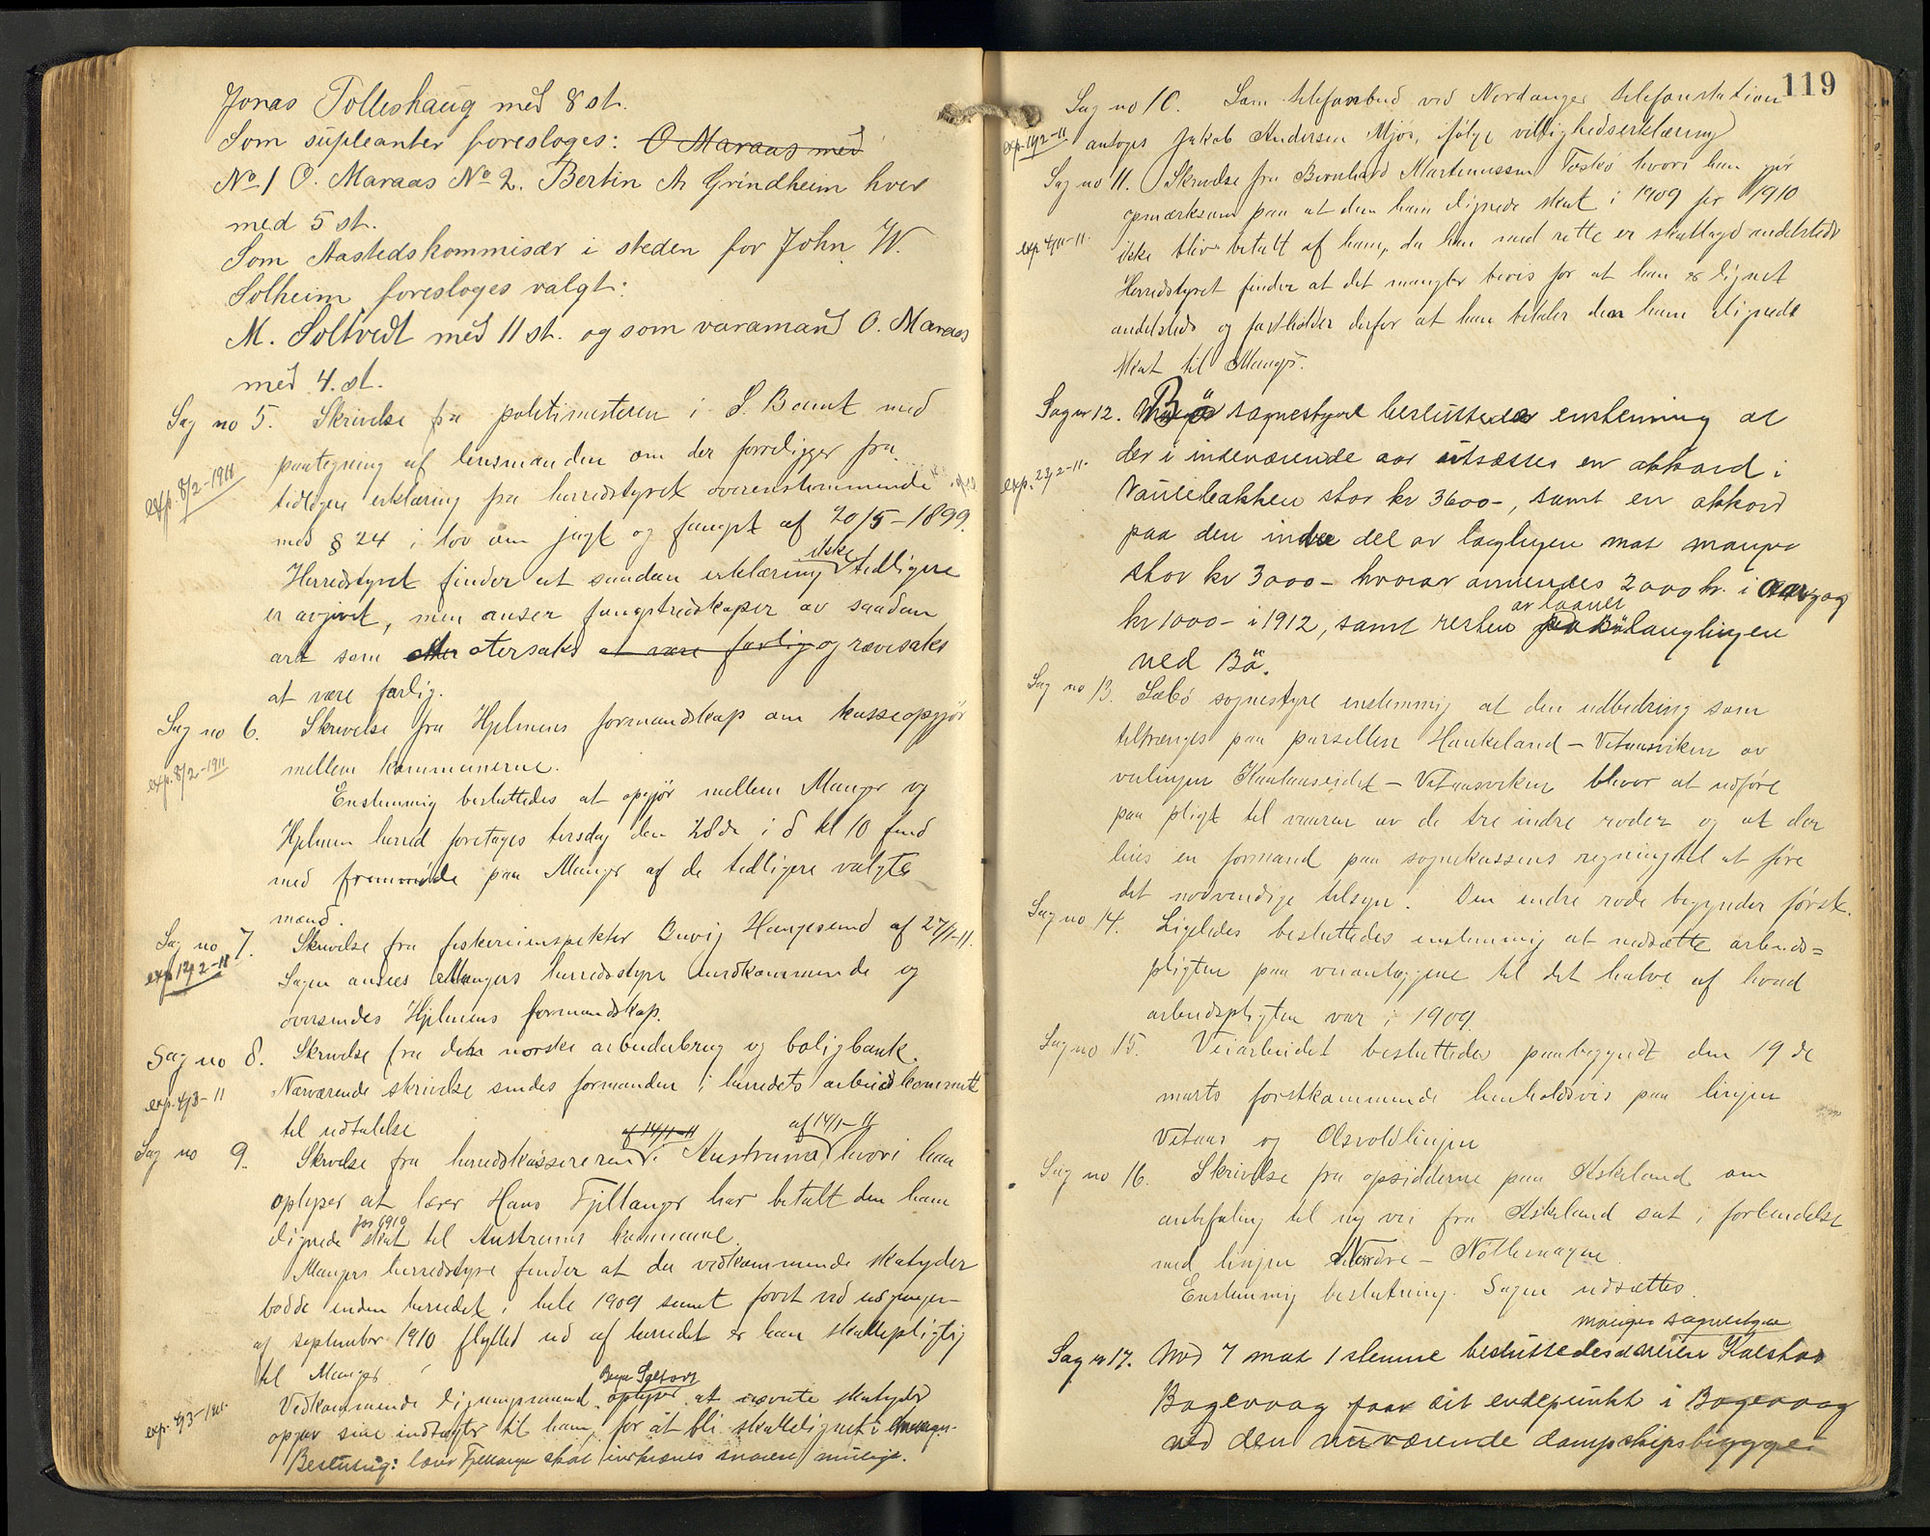 Jonas Tolleshaug med 8 st.
Som supleanter foresloges: O Maraas med
No 1 O. Maraas No 2. Bertin A Grindheim hver
med 5 st.
Som Aastedskommisær i steden for John W.
Solheim foresloges valgt:
M. Soltvedt med 11 st. og som varamand O. Maraas
med 4. st.
Sag no 5. Skrivelse fra politimesteren i S. Bamt med
exp. 8/2-1911
paategning af lensmanden om der foreligger fra
tidligere erklæring fra herredstyret overenstemmende
med § 24 i lov om jagt og fangst af 20/5-1899.
Herredstyret finder at saadan erklæring ikke tidligere
er avgivet, men anser fangstredskaper av saadan
art som otersaks at være farlig og rævesaks
at være farlig.
Sag no 6. Skrivelse fra Hjelmens formandskap om kasseopgjör
exp. 8/2-1911
mellem kommunerne.
Enstemmig besluttedes at opgjör mellem Manger og
Hjelmen herred foretages tirsdag den 28de i d kl 10 fmd
med fremmöde paa Manger af de tidligere valgte
mænd.
Sag no 7. Skrivelse fra fiskeriinspektör Buvig Haugesund af 27/1-11.
exp 14/2-11
Sagen ansees Mangers herredsstyre uvedkommende og
oversendes Hjelmens formandskap.
Sag no 8. Skrivelse fra den norske arbeiderbrug og boligbank.
exp. 4/3-11
Nærværende skrivelse sendes formanden i herredets arbeidskommite
til udtalelse
af 14/1-11 af 14/1-11
Sag no 9. Skrivelse fra herredskassereren i Austrum hvori han
oplyser at lærer Hans Fjellanger har betalt den ham
for 1910
ilignede skat til Austrums kommune.
Mangers herredsstyre finder at da vedkommende skatyder
bodde inden herredet i hele 1909 samt först ved udgangen
af september 1910 flytted ud af herredet er han skattepligtig
til Manger.
exp. 4/3-1911
Vedkommende ligningsmand oplyser at nævnte skatyder
opgav sine indtægter til ham, for at bli skattelignet i Manger.
Beslutnig: lærer Fjellanger skat inkræves snarest muligt.
119
Sag no 10. Som telefonbud ved Nordanger telefonstation
exp. 14/2-11
antoges Jakob Andersen Mjös, ifölge villighedserklæring
Sag no 11. Skrivelse fra Bernhard Martinussen Toskö hvori han gjör
opmærksom paa at den ham ilignede skat i 1909 for 1910
exp 4/3-11.
ikke blir betalt af ham, da han med rette er skattlagd andetsteds
Herredstyret finder at det mangler bevis for at han er lignet
andetsteds og fastholder derfor at han betaler den ham ilignede
skat til Manger.
Sag no 12. Bö sognestyre besluttedes enstemmig at
exp. 23/2-11.
der i indeværende aar utsættes en akkord i
stor kr 3600-, samt en akkord
paa den indre del av laglinjen mot Manger
stor kr 3000- hvorav anvendes 2000 kr. i aar og
av laanet
kr 1000- i 1912, samt resten
ved Bö.
Sag no 13. Sæbö sognestyre enstemmig at den udbedring som
tiltrænges paa parsellen Haukeland - Vetaasviken av
veilinjen - Vetaasviken blever at udföre
paa pligt til vaaren av de tre indre roder og at der
leies en formand paa sognekassens regning til at före
det nödvendige tilsyn. Den indre rode begynder först.
Sag no 14. Ligeledes besluttedes enstemmig at nedsætte arbeids=
pligten paa veianlæggene til det halve af hvad
arbeidspligten var i 1909.
Sag no 15. Veiarbeidet besluttedes paabegyndt den 19de
marts förstkommende henholdsvis paa linjen
Vetaas og Olsvoldlinjen
Sag no 16. Skrivelse fra opsidderne paa Askeland om
anbefaling til ny vei fra Askeland sat i forbindelse
med linjen Nordre -
Enstemmig beslutning. Sagen udsættes.
Manger sognestyre
Sag no 17. Med 7 mot 1 stemme besluttedes at veien Kalstad
Bogevaag faar sit endepunkt i Bogevaag
ved den nuværende dampskipsbrygge.